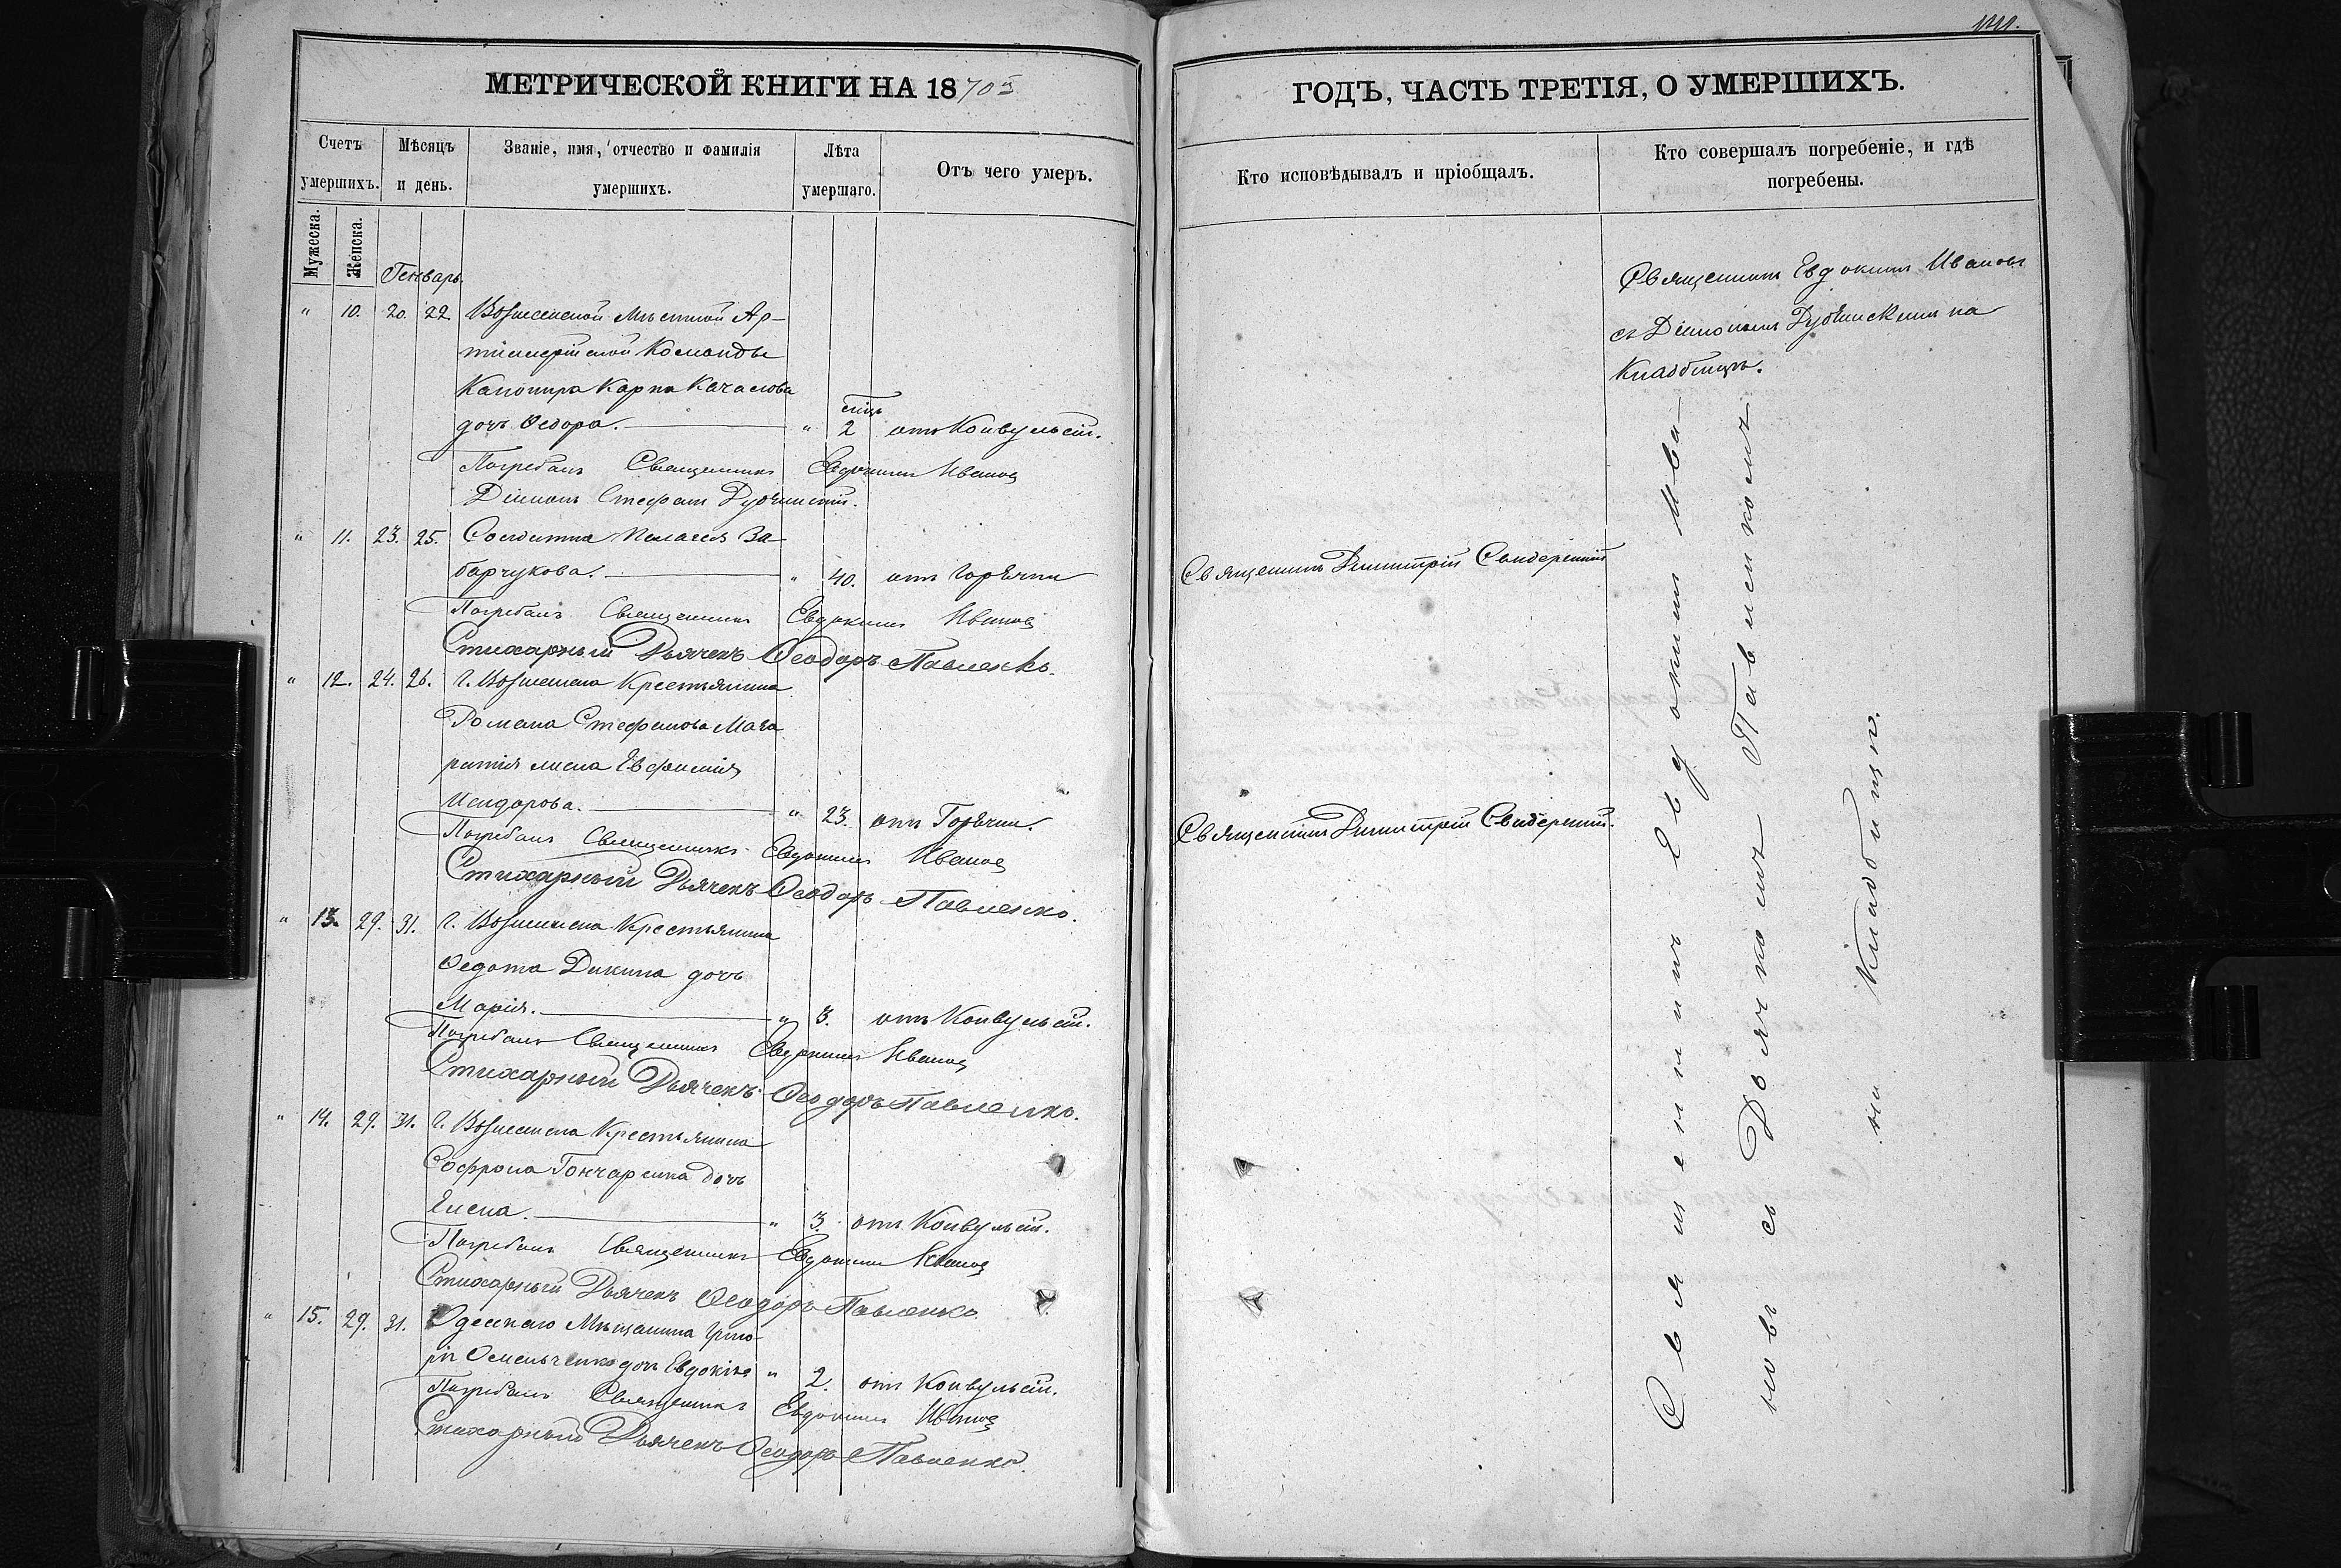 МЕТРИЧЕСКОЙ КНИГИ НА 1870
Счетъ умершихъ.
Мѣсяцъ и день.
Званіе, имя, отчество и фамилія умершихъ.
Лѣта умершаго.
Отъ чего умеръ.
Мужеска.
Женска.
Генварь.
" 10. 20. 22. Вознесенской Мѣстной Ар-
тиллерійской Команды
Канонира Карпа Качалова
дочь Ѳедора. " мѣц. 2 отъ Конвульсій.
Погребалъ Священникъ Евдокимъ Ивановъ
Діаконъ Стефанъ
" 11. 23. 25. Солдатка Пелагея За-
барчукова. " 40. отъ Горячки
Погребалъ Священникъ Евдокимъ Ивановъ
Стихарный Дьячекъ Ѳеодоръ Павленко.
" 12. 24. 26. Г. Вознесенска Крестьянина
Романа Стефанова
жена Евфимія
Исидорова. " 23. отъ Горячки.
Погребалъ Священникъ Евдокимъ Ивановъ
Стихарный Дьячекъ Ѳеодоръ Павленко.
" 13. 29. 31. Г. Вознесенска Крестьянина
Ѳедота Дикина дочь
Марія. " 3. отъ Конвульсій.
Погребалъ Священникъ Евдокимъ Ивановъ
Стихарный Дьячекъ Ѳеодоръ Павленко.
" 14. 29. 31. Г. Вознесенска Крестьянина
Софрона Гончаренка дочь
Елена. " 3. отъ Конвульсій.
Погребалъ Священникъ Евдокимъ Ивановъ
Стихарный Дьячекъ Ѳеодоръ Павленко.
" 15. 29. 31. Одесскаго Мѣщанина Григо-
рія Омельченко дочь Евдокія " 2. отъ Конвульсій.
Погребалъ Священникъ Евдокимъ Ивановъ
Стихарный Дьячекъ Ѳеодоръ Павленко.
ГОДЪ, ЧАСТЬ ТРЕТІЯ, О УМЕРШИХЪ.
Кто исповѣдывалъ и пріобщалъ.
Кто совершалъ погребеніе, и гдѣ
погребены.
Священникъ Евдокимъ Ивановъ
съ Діакономъ на
Кладбищѣ.
Священникъ Димитрій Свидерскій
Священникъ Димитрій Свидерскій.
Священникъ Евдокимъ Ива-
новъ съ Дьячкомъ Павленкомъ
на Кладбищѣ.